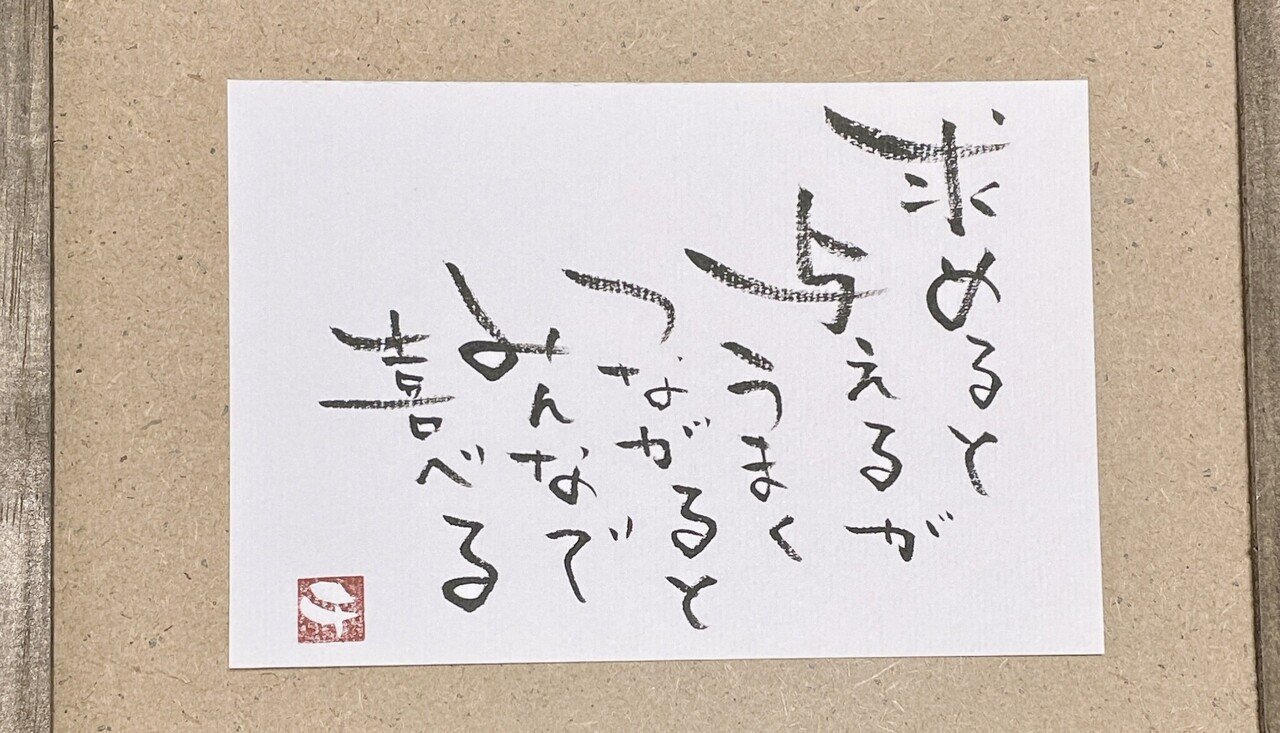 求めると
与えるが
うまく
つながると
みんなで
喜べる